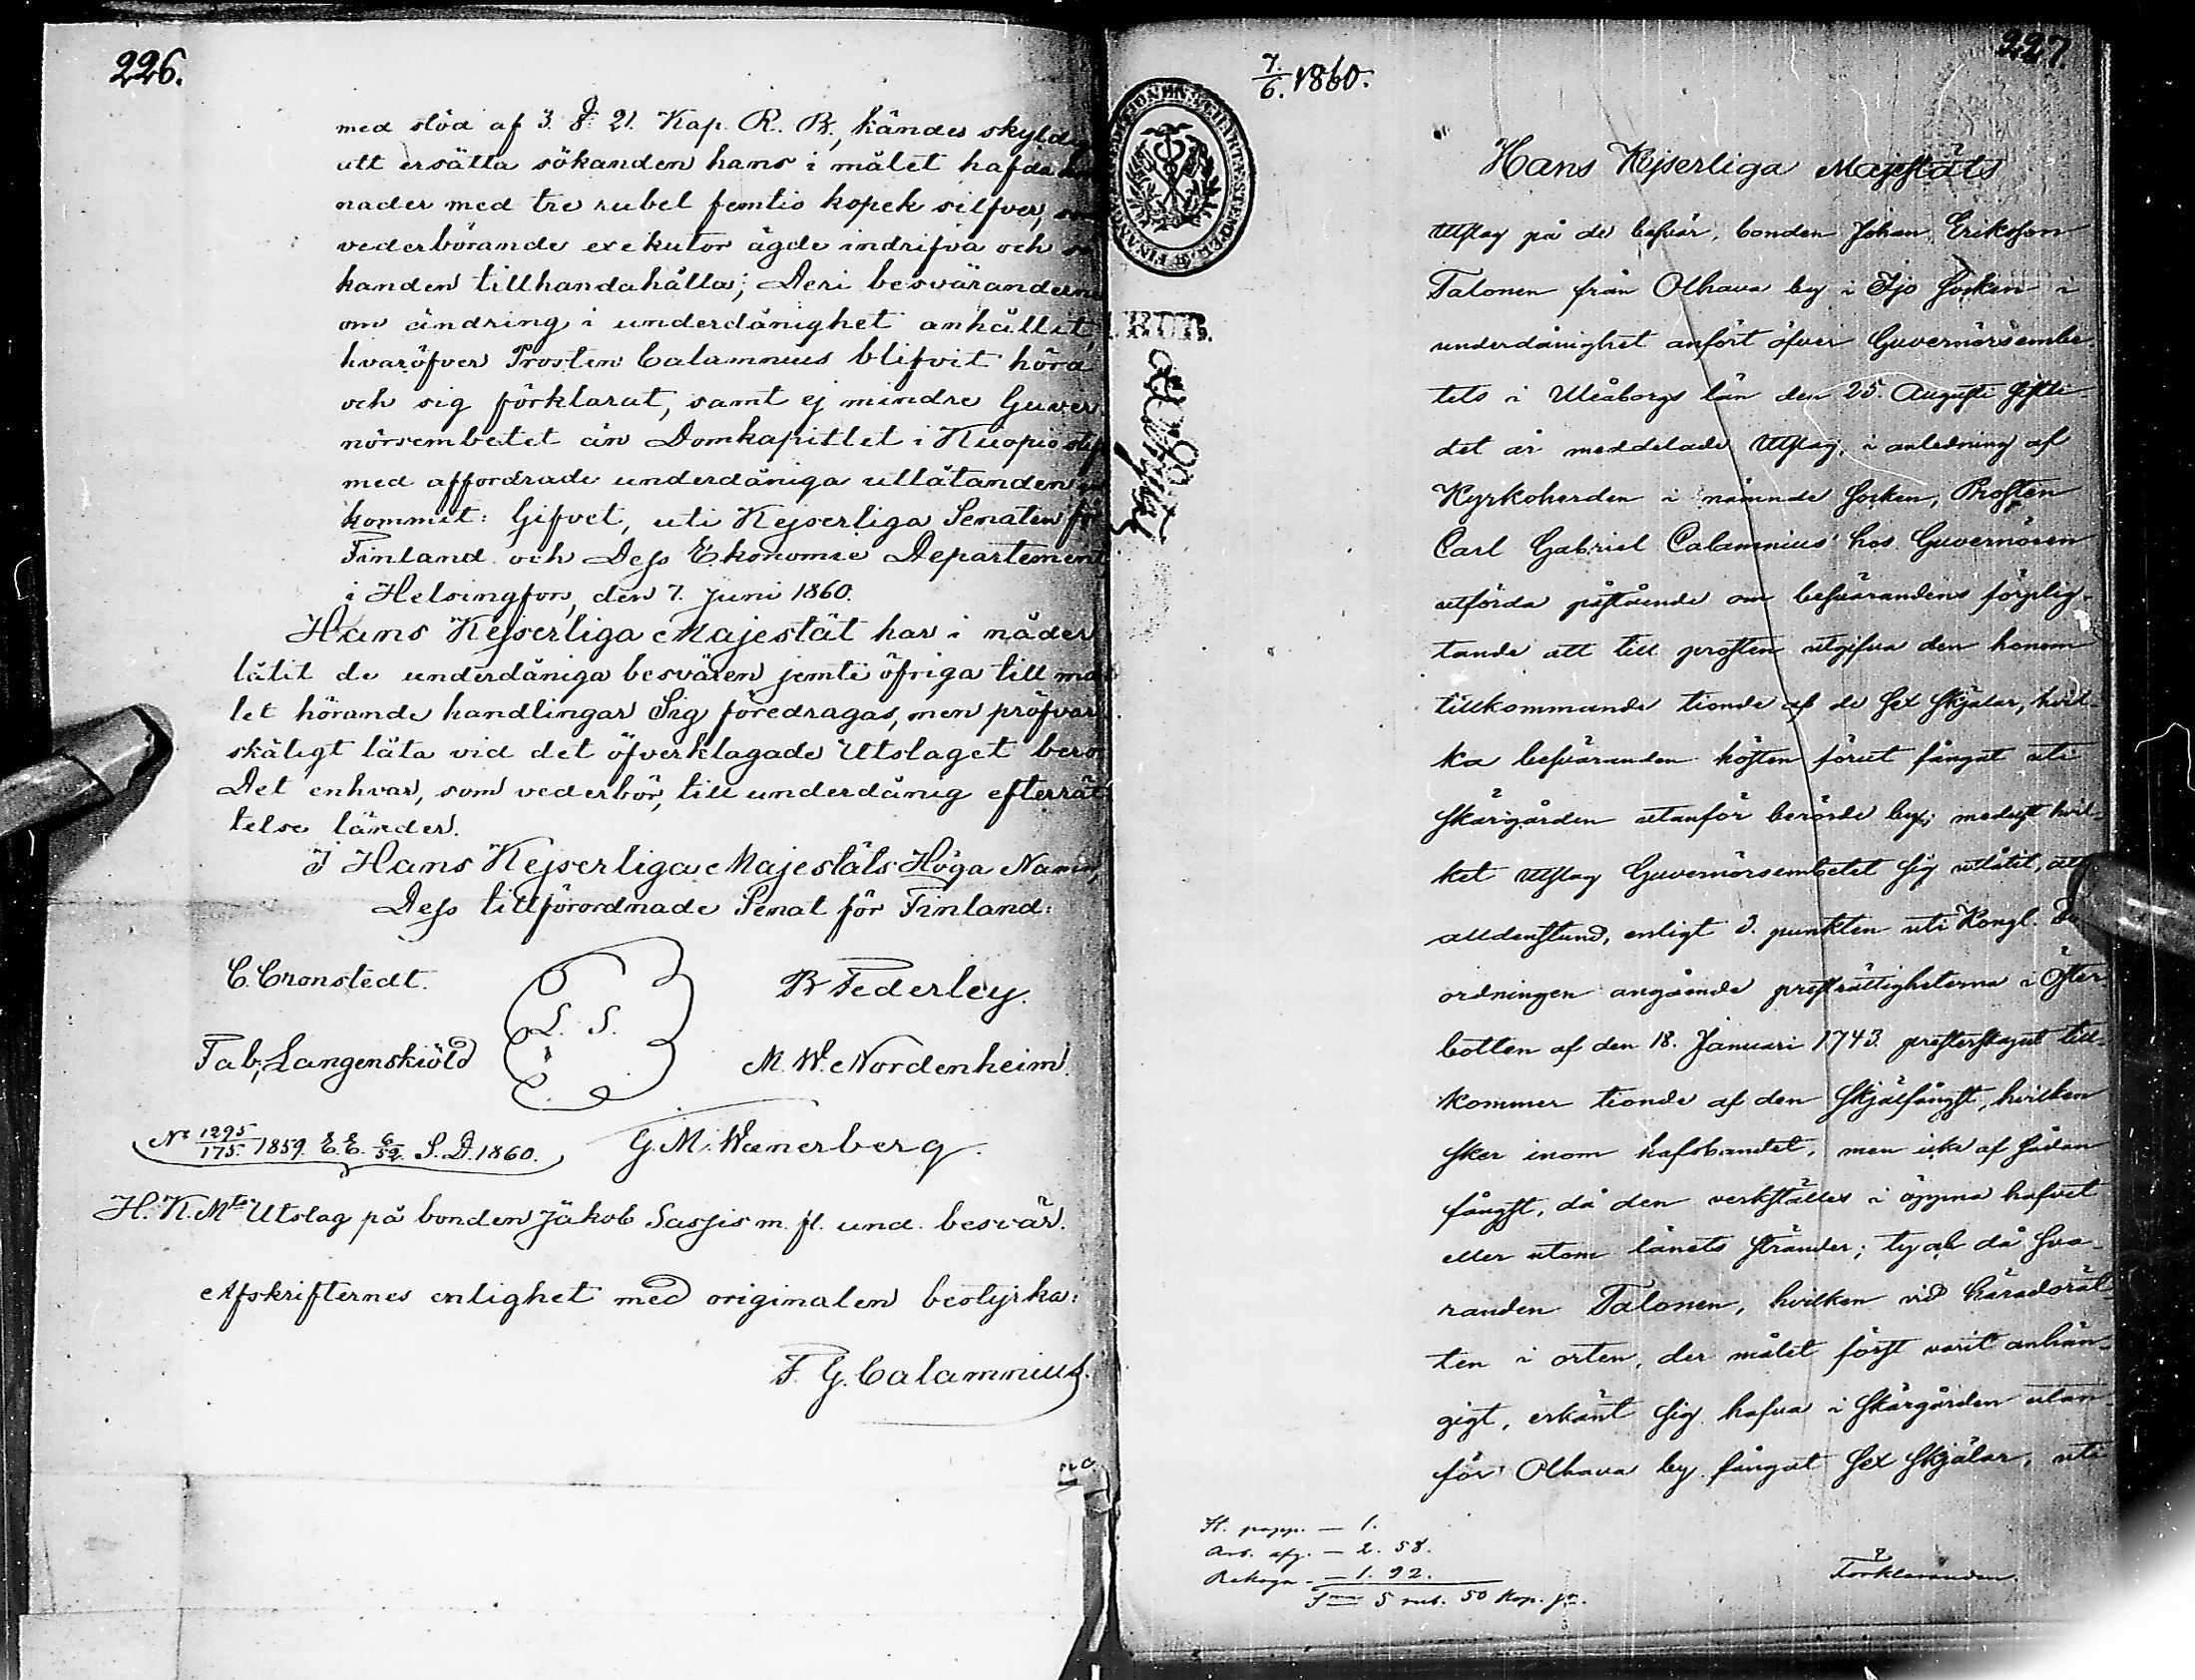 226.
med stöd af 3. § 21. Kap. R. B., kändes skyldig
att ersätta sökanden hans i målet hafda
nader med tre rubel femtio kopek silfver,
vederbörande exekutor ägde indrifva och
kanden tillhandahålla; Deri besvärandene
om ändring i underdånighet anhållit,
hvaröfver Prosten Calamnius blifvit hörd
och sig förklarat, samt ej mindre Guver
nörsembetet än Domkapitlet i Kuopio
med affordrade underdåniga utlåtanden
kommit: Gifvet, uti Kejserliga Senaten för
Finland och Dess Ekonomie Departement,
i Helsingfors, den 7. Juni 1860.
Hans Kejserliga Majestät har i nåder
låtit de underdåniga besvären jemte öfriga till må
let hörande handlingar Sig föredragas, men pröfvar
skäligt låta vid det öfverklagade Utslaget bero.
Det enhvar, som vederbör, till underdånig efterrät
telse länder.
I Hans Kejserliga Majestäts Höga Namn,
Dess tillförordnade Senat för Finland:
C. Cronstedt.
L. S.
B Federley.
Fab. Langenskiöld
M. W. Nordenheim.
No 1295/175. 1859. E. E. 6/52. S. D. 1860.
G. M. Wænerberg.
H. K. Mts Utslag på bonden Jakob Sasjis m. fl. und. besvär.
Afskrifternes enlighet med originalen bestyrka:
F. G. Calamnius.
227.
7./6. 1860.
Hans Kejserliga Majestäts
Utslag på de besvär, bonden Johan Eriksson
Talonen från Olhava by i Ijo Socken i
underdånighet anfört öfver Guvernörsembe
tets i Uleåborgs län den 25. Augusti sistli-
det år meddelade Utslag, i anledning af
Kyrkoherden i nämnde Socken, Prosten
Carl Gabriel Calamnius' hos Guvernören
utförda påstående om besvärandens förplig-
tande att till prosten utgifva den honom
tillkommande tionde af de sex skjälar, hvil-
ka besväranden hösten förut fångat uti
skärgården utanför berörde by; medelst hvil-
ket Utslag Guvernörsembetet sig utlåtit, att
alldenstund, enligt 3. punkten uti Kongl. För
ordningen angående presträttigheterna i Öster
botten af den 18. Januari 1743. presterskapet till-
kommer tionde af den skjälfångst, hvilken
sker inom hafsbandet, men icke af sådan
fångst, då den verkställes i öppna hafvet
eller utom länets stränder; ty ock då sva-
randen Talonen, hvilken vid häradsrät
ten i orten, der målet först varit anhän-
gigt, erkänt sig hafva i skärgården utan
för Olhava by fångat sex skjälar, uti
St. papp. — 1.
Ars. afg. — 2. 58.
— 1. 92.
Sma 5 rub. 50 kop. sr.
Förklaranden.